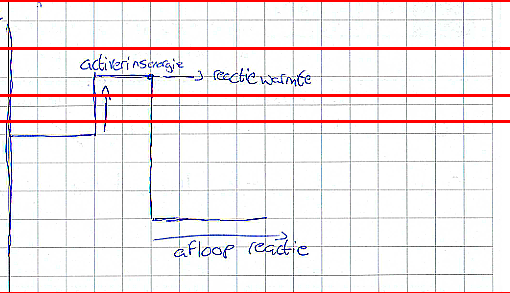 activeringsenergie
reactiewarmte
afloop reactie